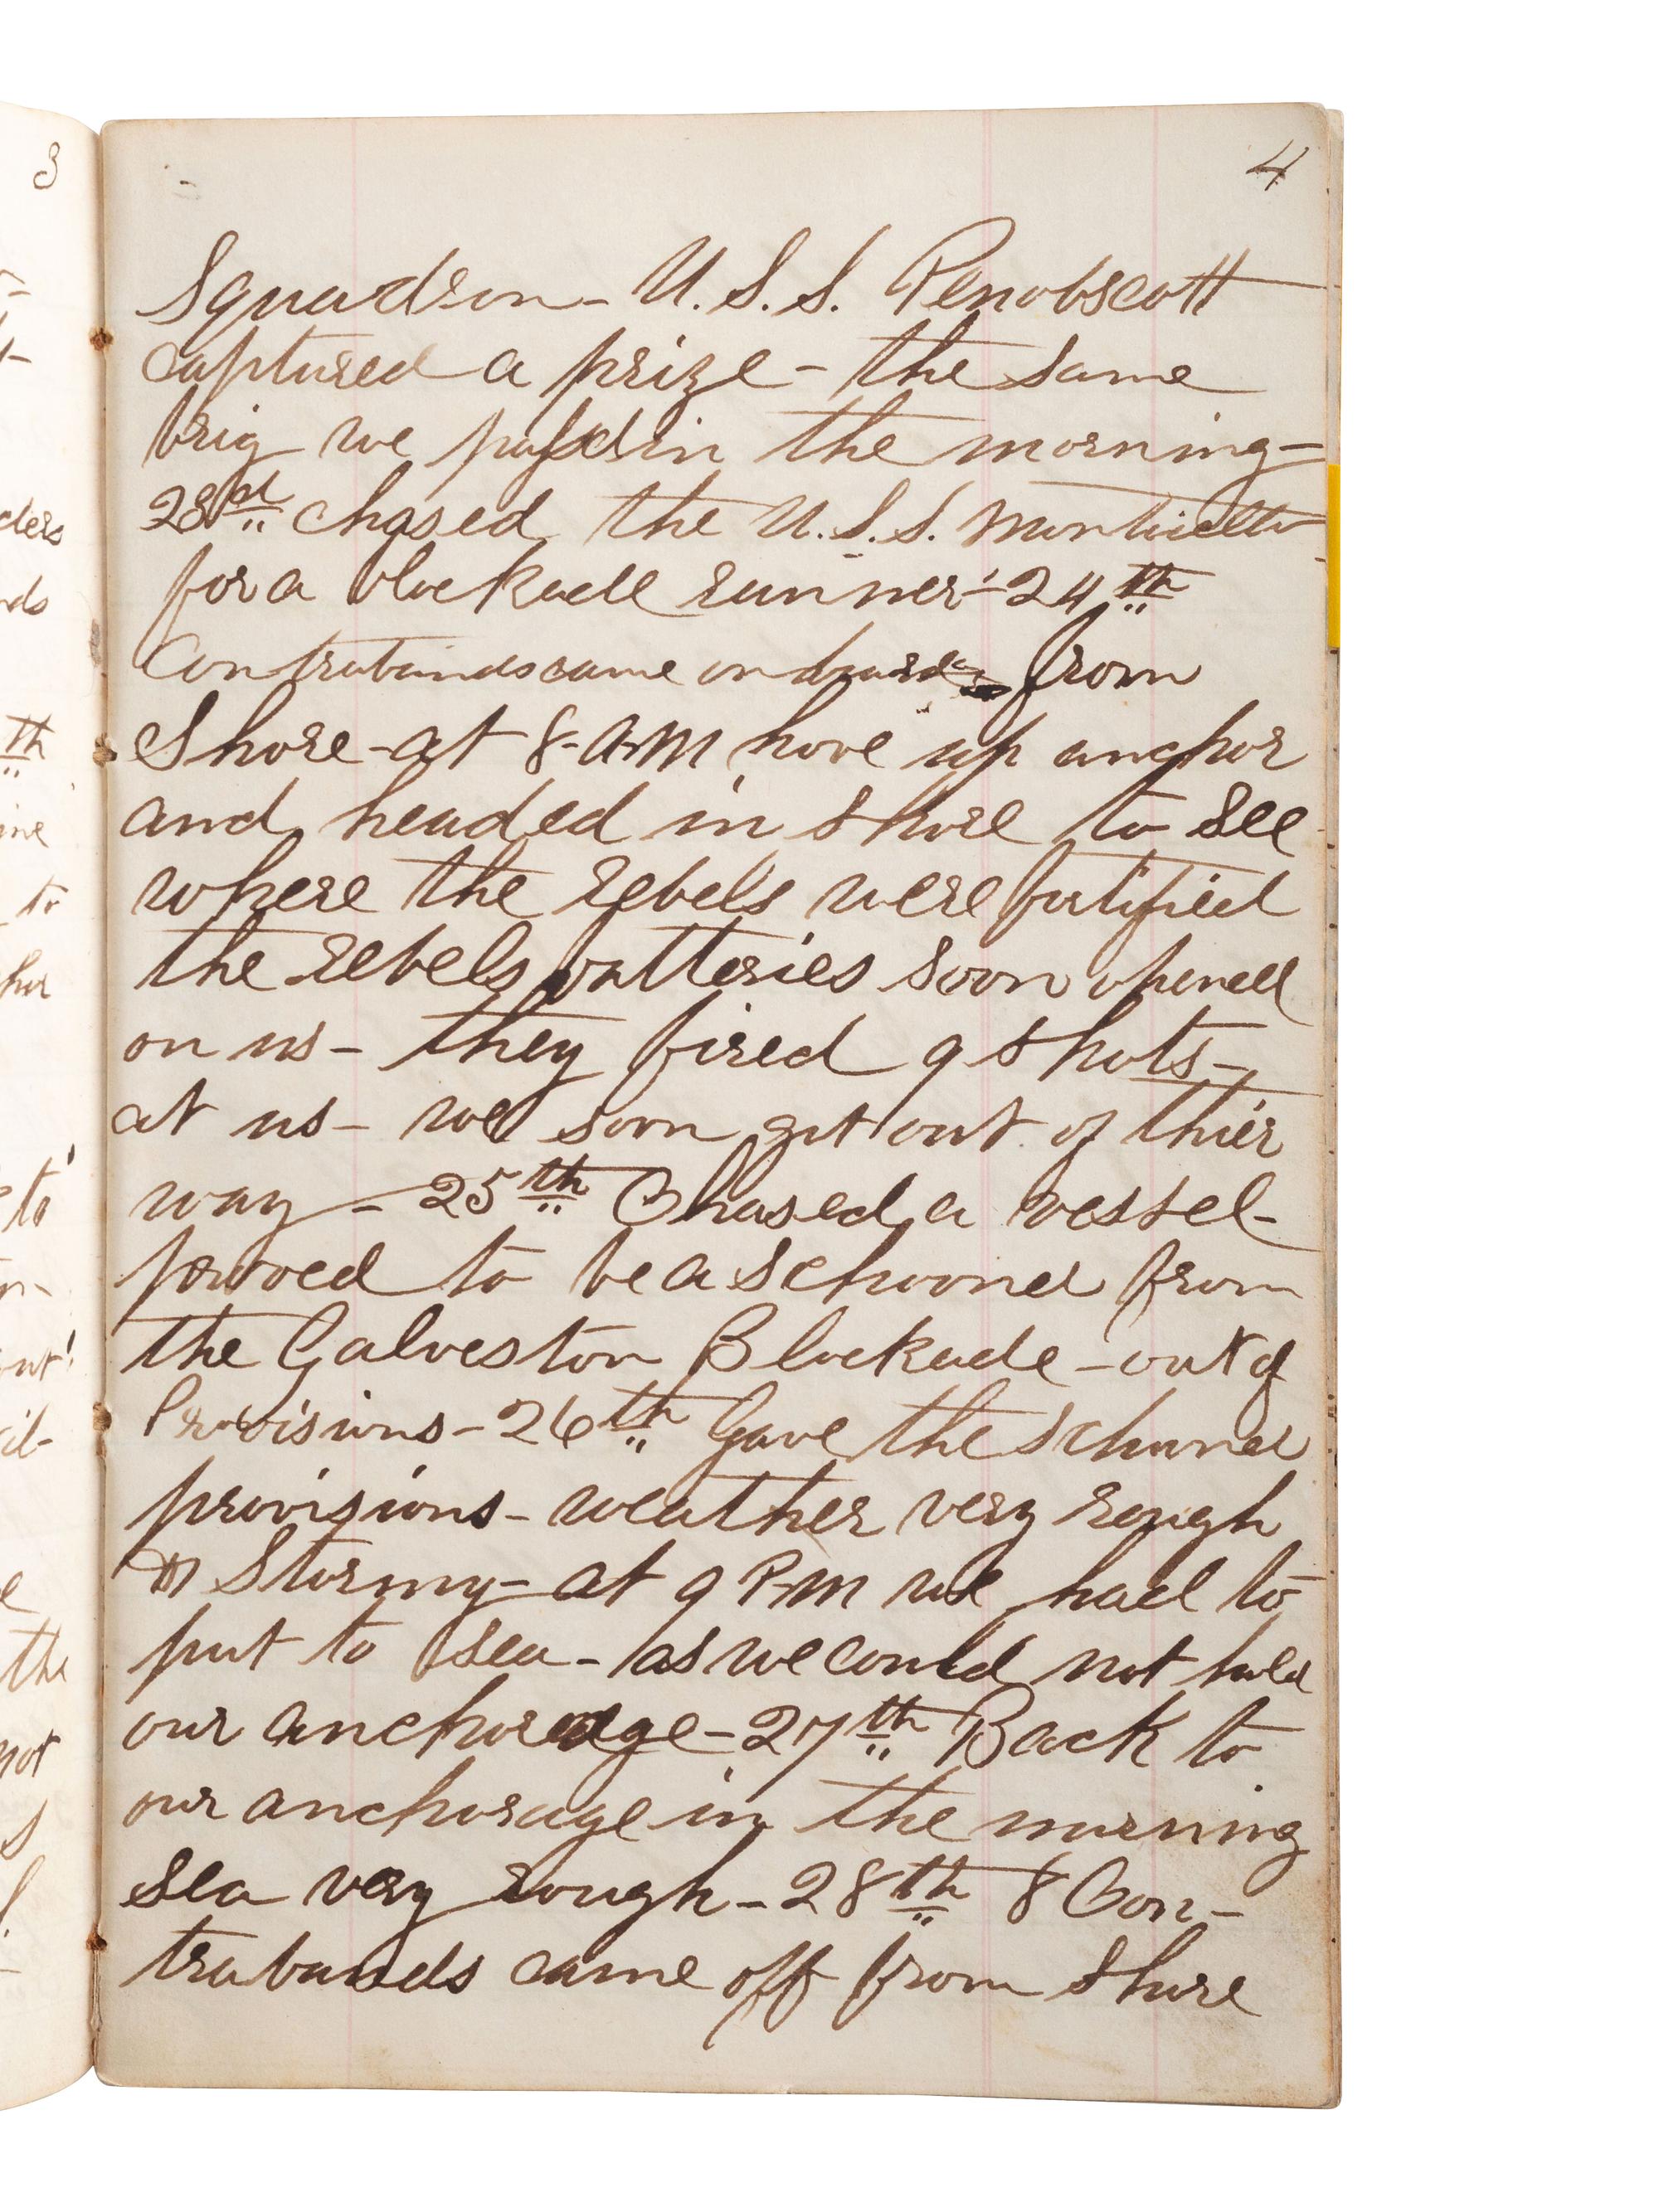 3
4
Squadron - U.S.S. Penobscott
captured a prize - the same
brig we passd in the morning -
23rd chased the U.S.S. Monticello
for a blockade runner - 24th
Contrabands came on board from
Shore - at 8 - A-M hove up anchor
and headed in shore to see
where the rebels were fortified
the rebels batteries soon opened
on us - they fired 9 shots -
at us - we soon got out of thier
way - 25th Chased a vessel -
proved to be a schooner from
the Galveston Blockade - out of
Provisions - 26th Gave the schooner
provisions - weather very rough
& Stormy - at 9 P-M we had to
put to sea - as we could not hold
our anchorage - 27th Back to
our anchorage in the morning
sea very rough - 28th 8 Con-
trabands came off from shore